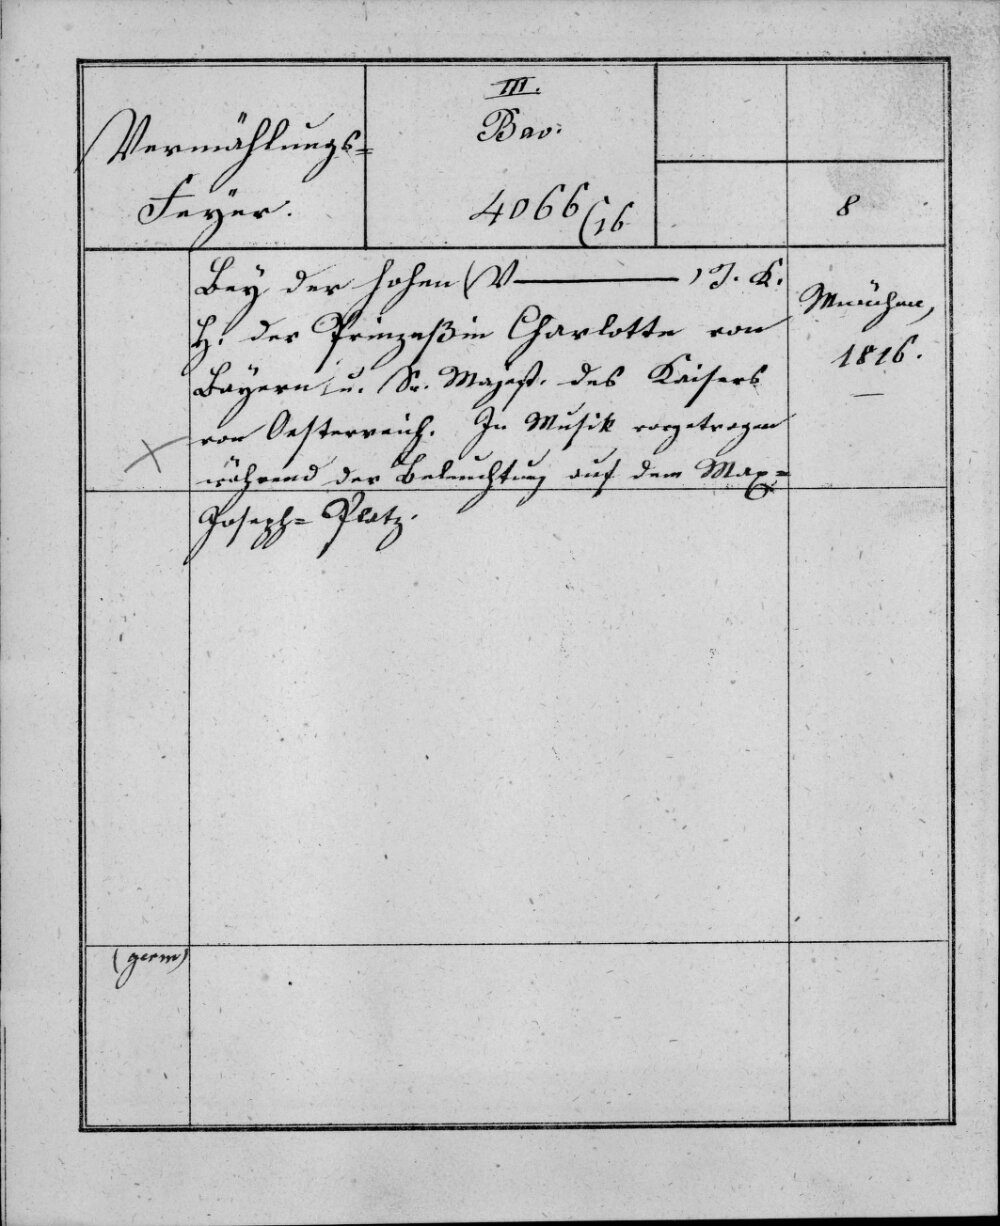 Vermählungs=
Feyer.
III.
Bav.
4066/16
8
Bey der hohen V——— , I. K.
H. der Prinzeßin Charlotte von
Bayern u. Sr. Majest. des Kaisers
von Oesterreich. In Musik vorgetragen
während der Beleuchtung auf dem Max=
Joseph= Platz.
München,
1816.
(germ)